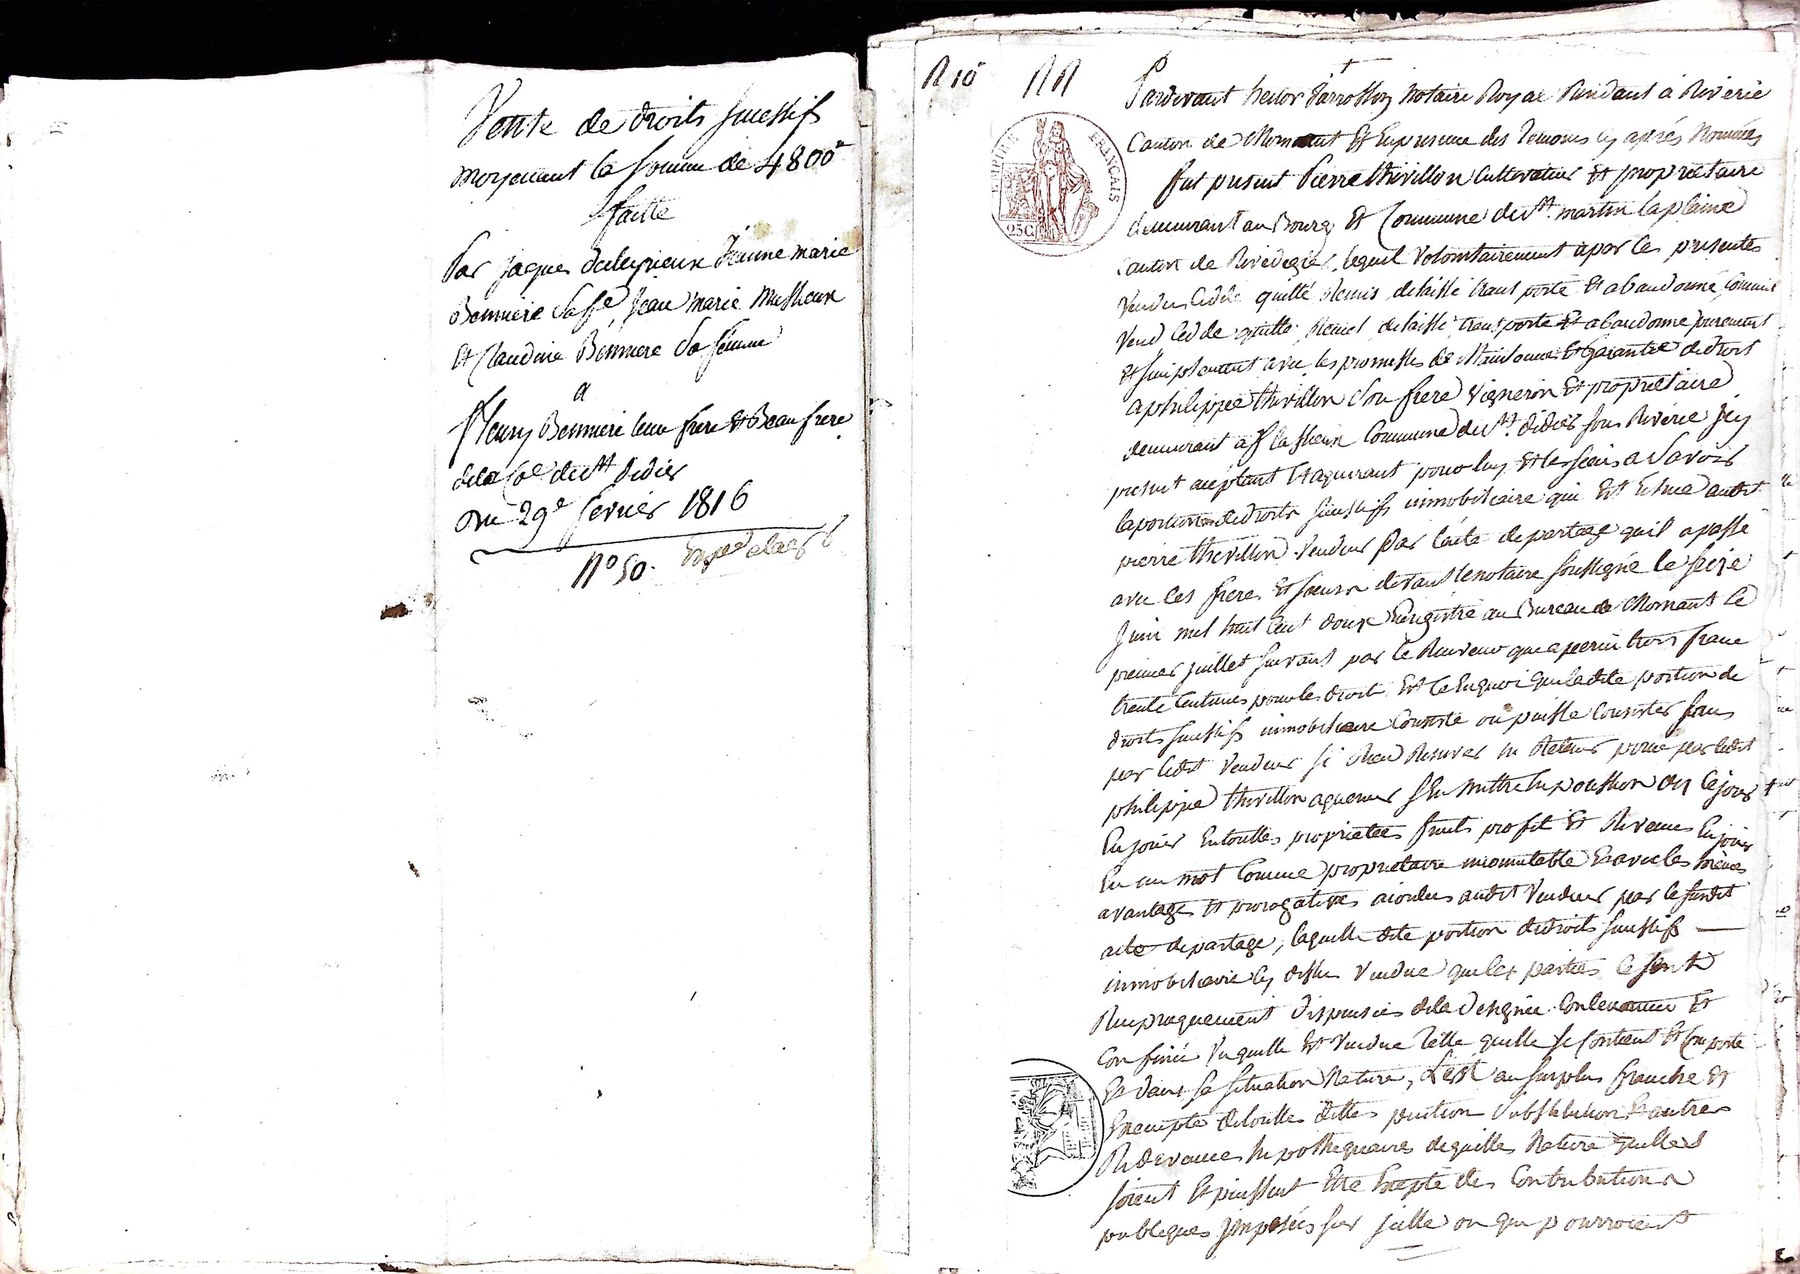 Vente de droits sucessifs
moyenant la somme de 4800
faitte
Par jaques jeanne marie
Bonniere sa Jean marie
Et Claudine Bonniere sa femme
a
fleury Bonniere leur frere Et Beau frere
de la de St Didier
Du 29e fevrier 1816
No 50.
R 10
Pardevant hector notaire Royal Residant à Riverie
Canton de Mornant Et En presence des temoins cy après Nommés
fut present Pierre thivillon cultivateur Et propriétaire
demeurant au Bourg Et Commune de St. martin la plaine
Canton de Rivedegier, lequel volontairement a par ces presentes
vendu cédé quitté Remis delaissé transporté Et abandonné, comme il
vend cedde quitte, Remet, delaisse transporte Et abandonne purement
Et simplement avec les promesses de Maintenue Et garantie de droit
a philippe thivillon son frere vigneron Et propriétaire
demeurant à Commune de St. didier sous Riverie Icy
present aceptant Et aquerant pour luy Et les siens a Savoir
la portion de droits sucessifs immobiliaire qui Est Echue audit
pierre thivillon vendeur par l'acte de partage qu'il a passé
avec ses freres Et soeurs devant le notaire soussigné le seize
Juin mil huit cent douze Enregistré au Bureau de Mornant le
premier juillet suivant par le Receveur que a percu trois franc
trente centimes pour les droits Et ce En quoi que ladite portion de
droits sucessifs immobiliaire Consiste ou puisse Consister sans
par ledit vendeur si Rien Reserver ni Retenir pour par ledit
philippe thivillon aquereur s'En mettre En possession des ce jour
En jouir En touttes propriétés fruits profit Et Revenus En jouir
En un mot Comme propriétaire incomutable Et avec les mêmes
avantages Et prerogatives audit vendeur par le susdit
acte de partage, laquelle dite portion de droits sucessifs
immobiliaire cy dessus vendue que les parties se sont
Reciproquement dispensées de la designée Contenance Et
Confinée vu quelle Est vendue telle quelle se Contient Et Comporte
Et dans sa situation Nature, au surplus franche Et
Exempte de toutte dettes pention substitution Et autres
Redevances hypothequaires de quelle Nature quelles
soient Et puissent Etre Excepté des Contributions
publiques imposées sur jcelle ou qui pourroient
EMPIRE FRANÇAIS
25C